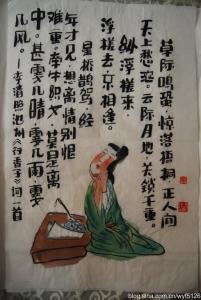 草际鸣蛩、惊落梧桐、正人间
天上愁浓。云阶月地、关锁千重。
纵浮槎来、
浮槎去、不相逢。
星桥鹊驾、经
年才见、想离情别恨
难穷。牵牛织女、莫是离
中。甚霎儿晴、霎儿雨、霎
儿风。—李清照池州《行香子》词一首
blog.sina.com.cn/wyf5126